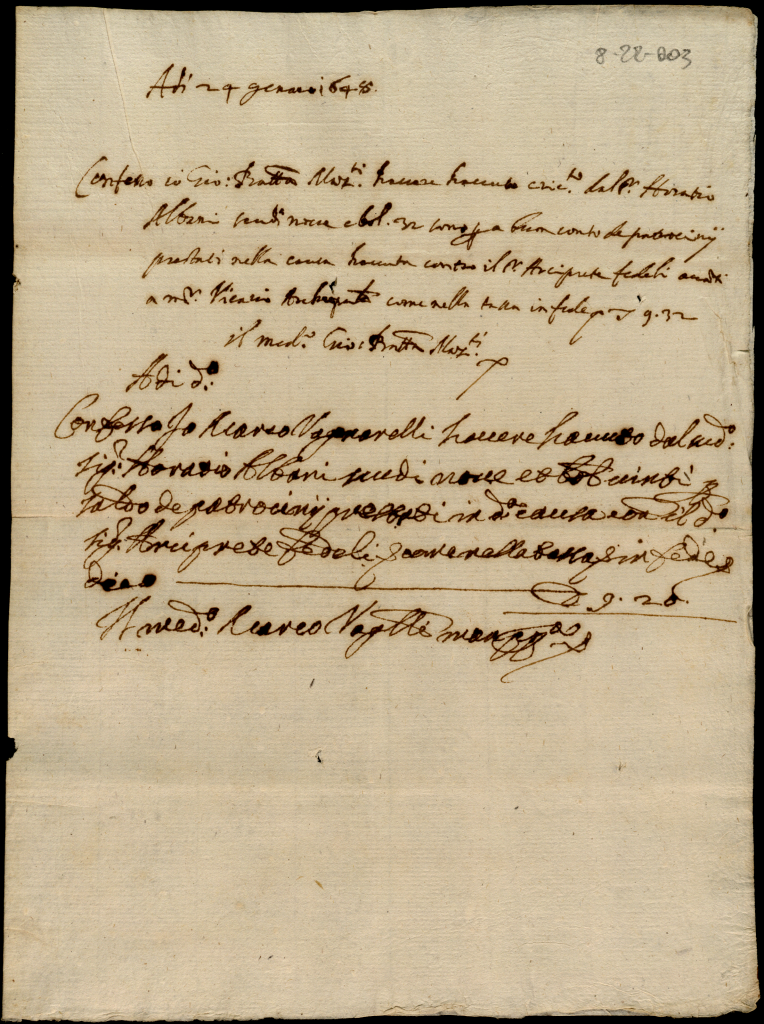 8-22-003
Adi 24 genaro 1648.
Confesso io Gio: Bratta Maz.ti havere havuto e ric.to dal S.r Horatio
Albani scudi nove e bol. 32 sono p a buon conto de patrocinij
prestati nella causa havuta contro il S.r Arciprete fedeli avanti
a m.r Vicario come nella tassa in fede p 9.32
il med.o Gio: Bratta Maz.ti
Adi d.o
Confesso Io Marco Vagnarelli havere havuto dal med.o
sig.r Horatio Albani scudi nove et bol: vinti p
saldo de patrocinij prestati in d.a causa con il d.o
sig.r Arciprete Fedeli come nella tassa in fede
dico 9.20.
Il med.o Marco Vag.lli man pp.a